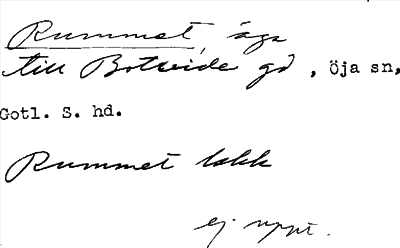 Rummet, äga
till Botvide gd, Öja sn,
Gotl. S. hd.
Rummet lakk
ej uppt.